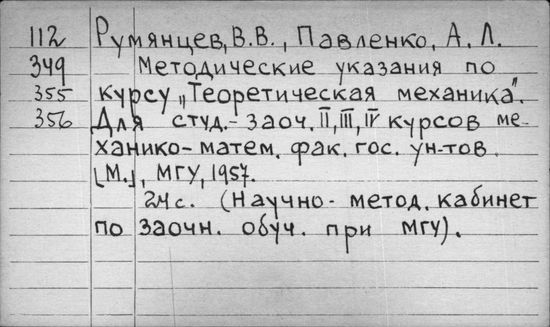 112 Румянцев, В.В., Павленко, А.Л.
349 Методические указания по
355 курсу „Теоретическая механика".
356 Для студ.-заоч. II, III, IV курсов ме-
ханико-матем. фак. гос. ун-тов.
[М.], МГУ, 1957.
24 с. (Научно-метод. кабинет
по заочн. обуч. при МГУ).